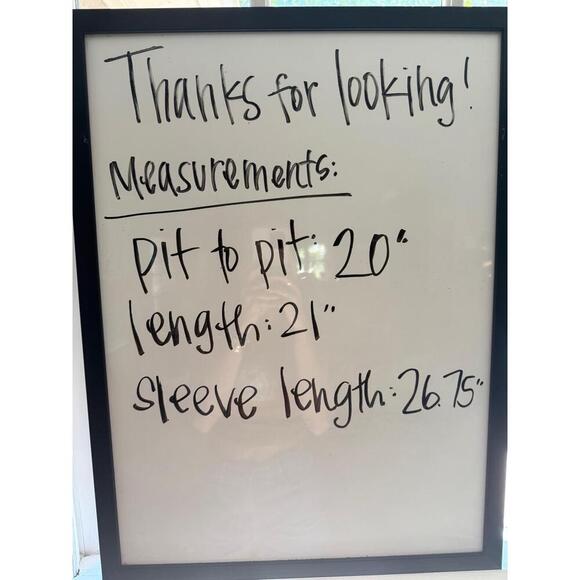 Thanks for looking!
Measurements:
pit to pit: 20"
length: 21"
sleeve length: 26.75"